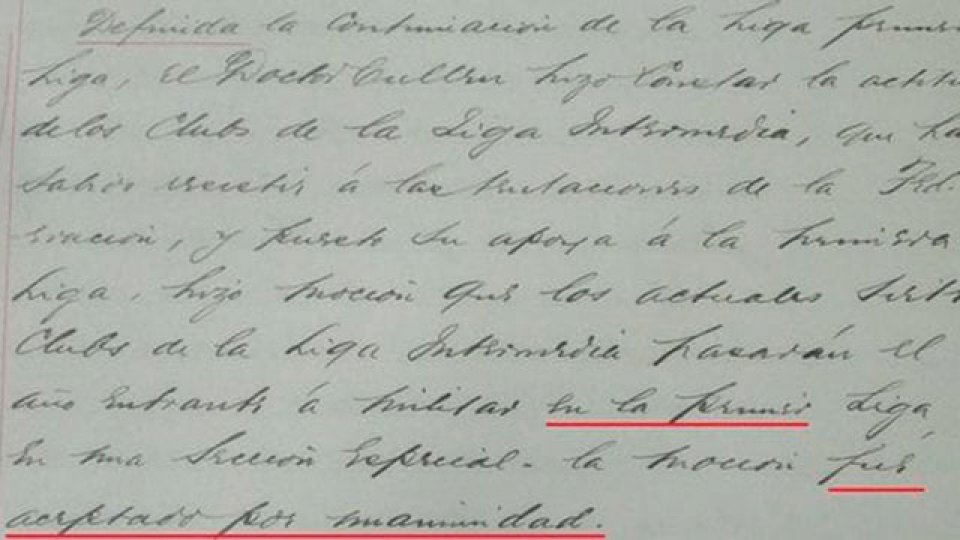 Definida la Continuación de la Liga primer
Liga, el Doctor Cullen hizo Constar la actitu
de los Clubs de la Liga Intermedia, que ha
sabido resistir á las tentaciones de la Fed-
eración, y puesto su apoyo á la primera
Liga, hizo moción que los actuales siete
Clubs de la Liga Intermedia pasarán el
año entrante á militar en la primer Liga,
en una Sección Especial- la moción fué
aceptado por unanimidad.